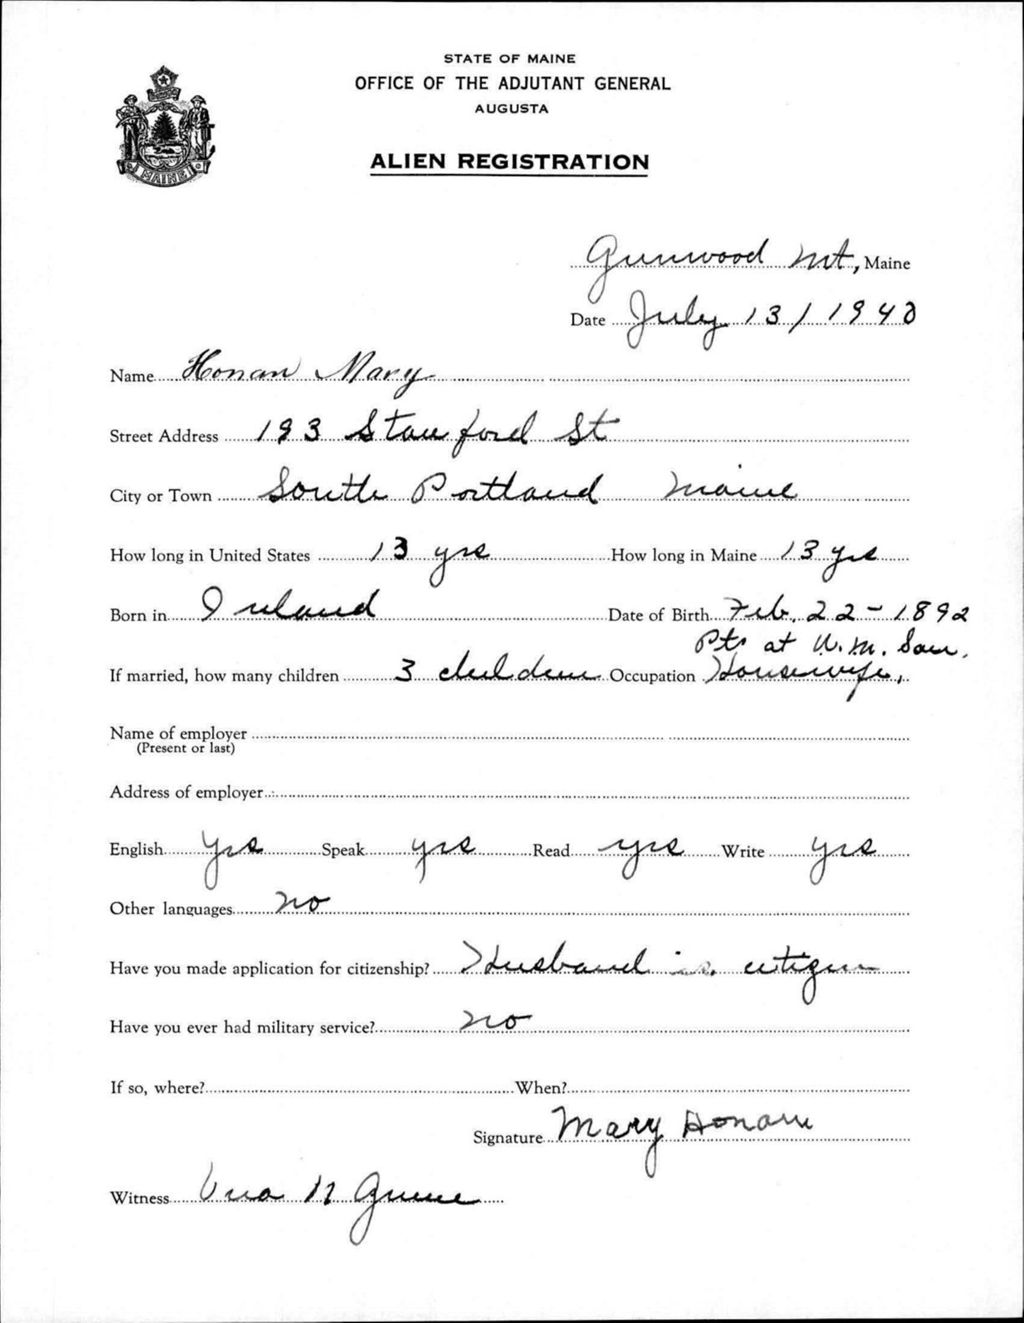 STATE OF MAINE
OFFICE OF THE ADJUTANT GENERAL
AUGUSTA
ALIEN REGISTRATION
MAINE
Greenwood Mt, Maine
Date July 13 / 1940
Name Honan Mary
Street Address 193 Stanford St
City or Town South Portland Maine
How long in United States 13 yrs How long in Maine 13 yrs
Born in Ireland Date of Birth Feb. 22 - 1892
Pt. at W. M. San.
If married, how many children 3 children Occupation Housewife,
Name of employer
(Present or last)
Address of employer
English yes Speak yes Read yes Write yes
Other languages no
Have you made application for citizenship? Husband is citizen
Have you ever had military service? no
If so, where? When?
Signature Mary Honan
Witness Vera N Greene